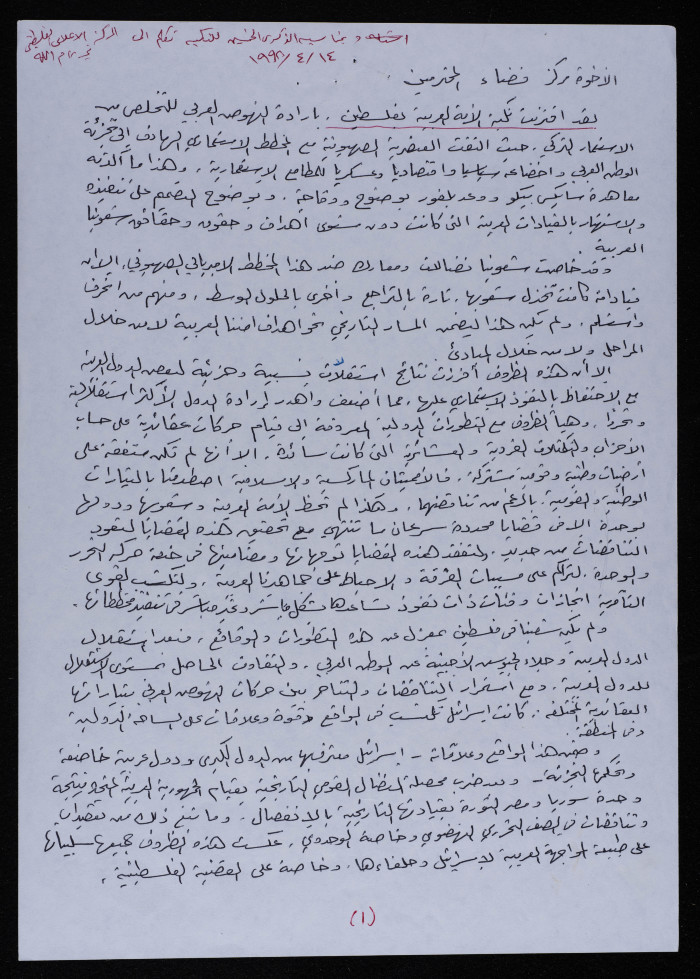 وبمناسبة الذكرى الخمسين للنكبة تقدم الى المركز الاعلامي الفلسطيني
١٩٩٨/٤/١٤ رام الله
الأخوة مركز فضاء المحترمين
لقد اقترنت نكبة الأمة العربية بفلسطين، بارادة النهوض العربي للتخلص من
الاستعمار التركي، حيث التقت العنصرية الصهيونية مع المخطط الاستعماري الهادف الى تجزئة
الوطن العربي واخضاعه سياسيا واقتصاديا وعسكريا للمطامع الاستعمارية، وهذا ما أكدته
معاهدة سايكس بيكو ووعد بلفور بوضوح ووقاحة، وبوضوح التصميم على تنفيذه
والاستهتار بالقيادات العربية التي كانت دون مستوى أهداف وحقوق وحقائق شعوبنا
العربية
وقد خاضت شعوبنا نضالات ومعارك ضد هذا المخطط الامبريالي الصهيوني، إلا أن
قياداته كانت تخذل شعوبها، تارة بالتراجع وأخرى بالحلول الوسط، ومنهم من انحرف
واستسلم، ولم يكن هذا ليضمن المسار التاريخي نحو اهداف امتنا العربية لا من خلال
المراحل ولا من خلال المبادئ
إلا أن هذه الظروف أفرزت نتائج استقلالات نسبية وجزئية لبعض الدول العربية
مع الاحتفاظ بالنفوذ الاستعماري عليها، مما أضعف وأهدر ارادة الدول الأكثر استقلالية
وتحررا، وهيأ الظروف مع التطورات الدولية المعروفة الى قيام حركات عقائدية على حساب
الأحزاب والتكتلات الفردية والعشائرية التي كانت سائدة، الا أنها لم تكن متفقة على
أرضيات وطنية وقومية مشتركة، فالأمميتان الماركسية والاسلامية اصطدمتا بالتيارات
الوطنية والقومية، بالرغم من تناقضهما، وهكذا لم تحظ الأمة العربية وشعوبها ودولها
بوحدة الا في قضايا محددة سرعان ما تنتهي مع تحقيق هذه القضايا لتعود
التناقضات من جديد، ولتفقد هذه القضايا توجهاتها ومضامينها في خدمة حركة التحرر
والوحدة، لتراكم على مسببات الفرقة والاحباط على جماهيرنا العربية، ولتكتسب القوى
التآمرية انجازات وفئات ذات نفوذ تساعدها بشكل مباشر وغير مباشر في تنفيذ مخططاتها.
ولم يكن شعبنا في فلسطين بمعزل عن هذه التطورات والوقائع، فبعد استقلال
الدول العربية وجلاء الجيوش الأجنبية عن الوطن العربي، والتفاوت الحاصل بمستوى الاستقلال
للدول العربية، ومع استمرار التناقضات والتناحر بين حركات النهوض العربي بتياراتها
العقائدية المختلفة، كانت اسرائيل تكتسب في الواقع قوة وعلاقات على الساحة الدولية
وفي المنطقة.
وضمن هذا الواقع وعلاقاته - اسرائيل معترف بها من الدول الكبرى ودول عربية خاضعة
وتحكمها التجزئة - وبعد ضرب محصلة النضال القومي التاريخية بقيام الجمهورية العربية المتحدة نتيجة
وحدة سوريا ومصر الثورة بقيادتها التاريخية بالانفصال، وما نتج ذلك من تعقيدات
وتناقضات في الصف التحرري النهضوي وخاصة الوحدوي، عكست هذه الظروف جميعها سلبياتها
على طبيعة المواجهة العربية لاسرائيل وحلفاءها، وخاصة على القضية الفلسطينية.
(١)